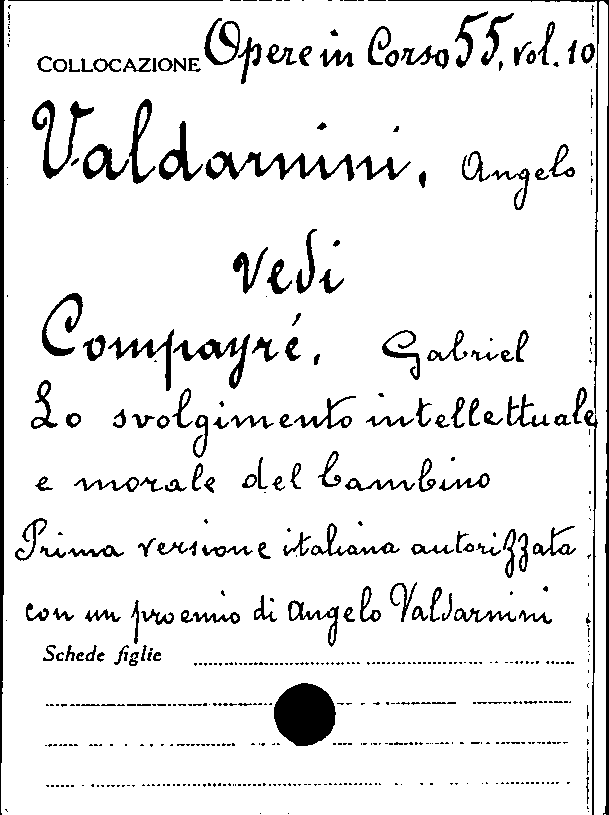 COLLOCAZIONE Opere in Corso 55, vol. 10
Valdarnini, Angelo
vedi
Compayré, Gabriel
Lo svolgimento intellettuale
e morale del bambino
Prima versione italiana autorizzata
con un proemio di Angelo Valdarnini
Schede figlie